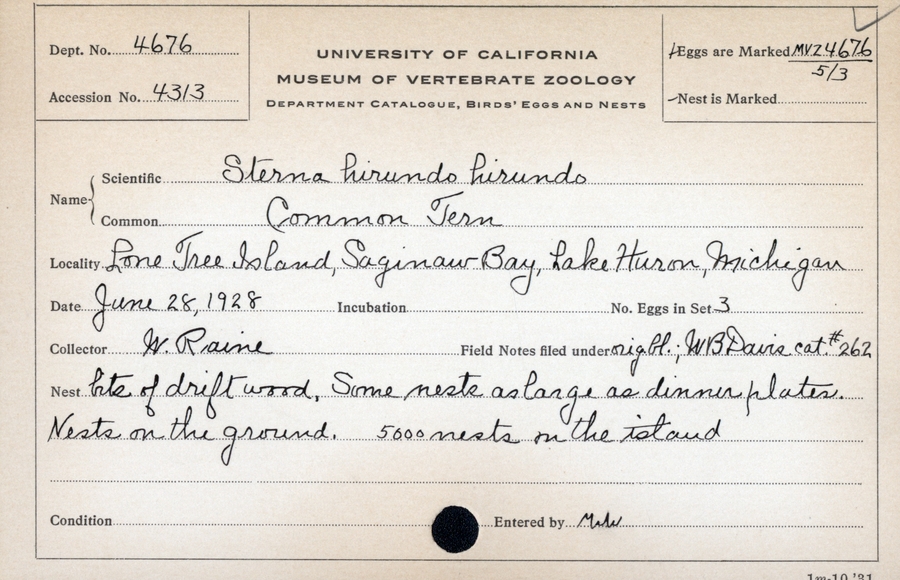 Dept. No. 4676
Accession No. 4313
UNIVERSITY OF CALIFORNIA
MUSEUM OF VERTEBRATE ZOOLOGY
DEPARTMENT CATALOGUE, BIRDS' EGGS AND NESTS
Eggs are Marked MVZ4676
5/3
Nest is Marked
Name
Scientific Sterna hirundo hirundo
Common Common Tern
Locality Lone Tree Island, Saginaw Bay, Lake Huron, Michigan
Date June 28, 1928 Incubation No. Eggs in Set 3
Collector W. Raine Field Notes filed under orig bl.; WB Davis cat. #262
Nest bits of drift wood, Some nests as large as dinner plates.
Nests on the ground. 5000 nests on the island
Condition Entered by
1m-10,'31